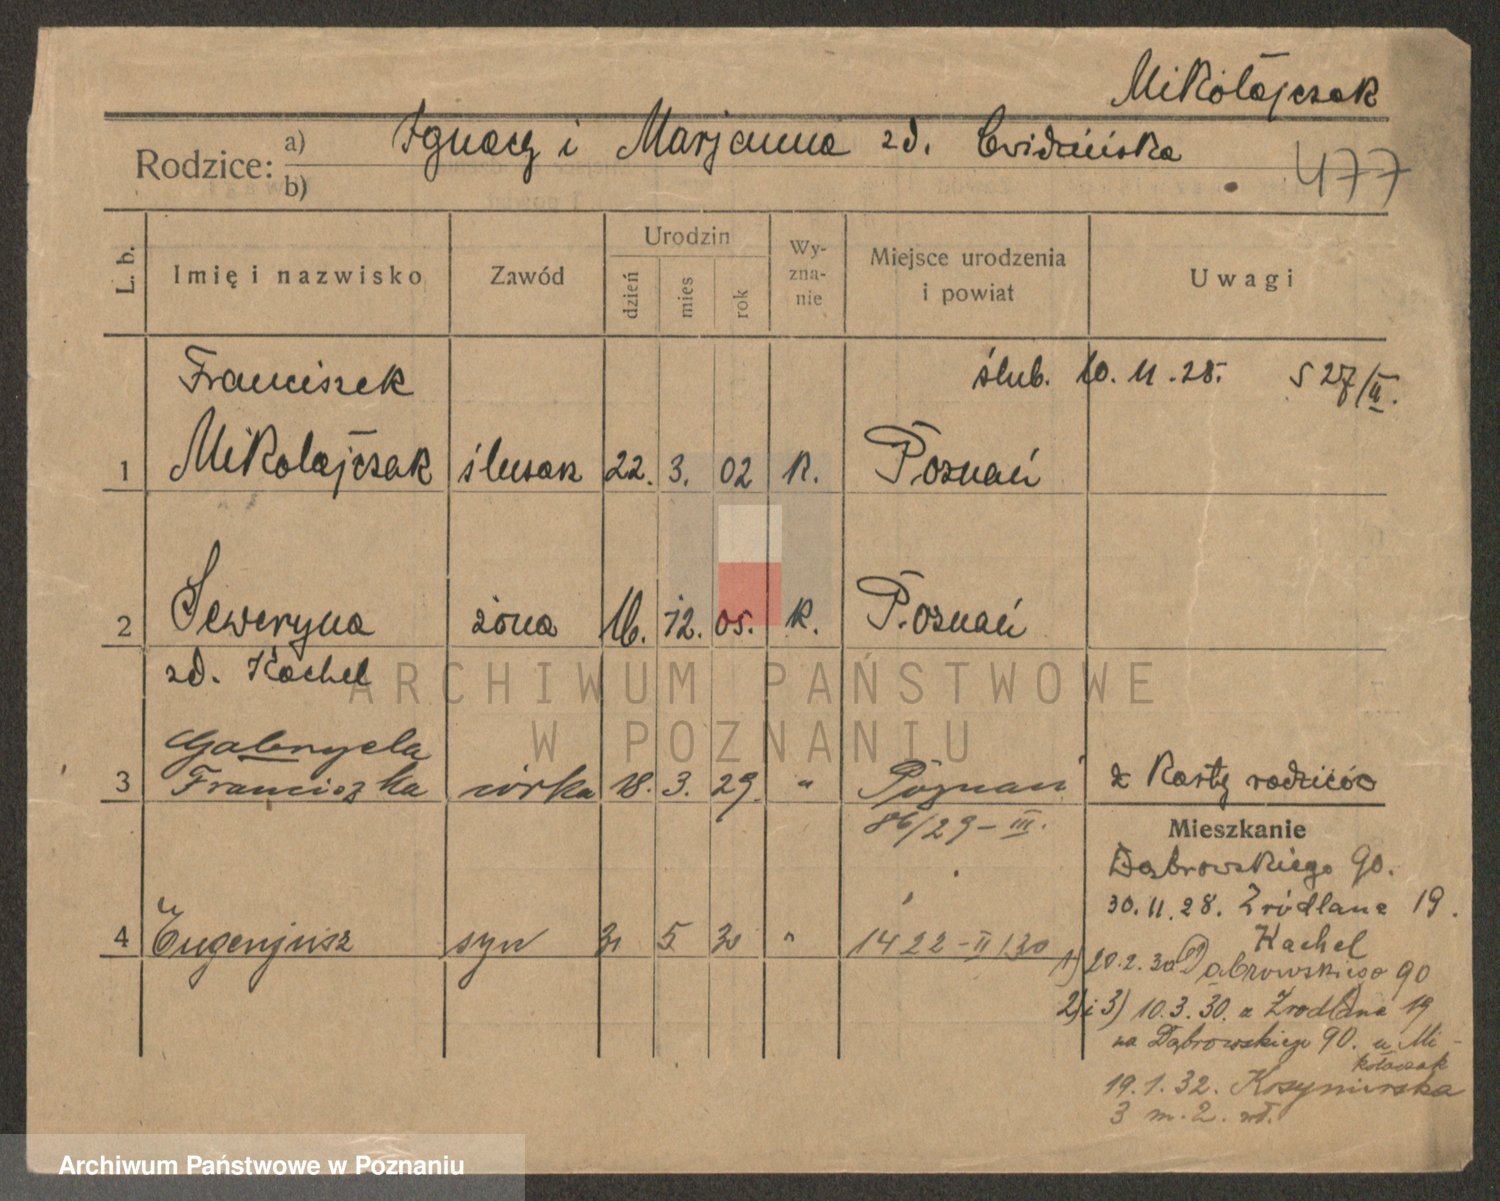 Mikołajczak
Rodzice: a) Ignacy i Marjanna zd. Cwidzińska
b)
477
L. b.
Imię i nazwisko
Zawód
Urodzin
dzień
mies
rok
Wy-
zna-
nie
Miejsce urodzenia
i powiat
Uwagi
Franciszek
ślub. 10. 11. 28. 527/II.
1 Mikołajczak ślusarz 22. 3. 02 R. Poznań
2 Seweryna żona 16. 12. 05. R. Poznań
zd. Kachel
Gabryela
3 Franciszka córka 18. 3. 29. " Poznań z Karty rodziców
86/29-III.
Mieszkanie
Dąbrowskiego 90.
30. 11. 28. Źródlana 19.
Kachel
4 Eugenjusz syn 5 30 " 1422-II/30
1) 20.2.30 Dąbrowskiego 90
2) i 3) 10.3.30. z Źrodlana 19
na Dąbrowskiego 90. u Mi-
kołajczak
19.1.32. Kosynierska
3 m. 2. wł.
ARCHIWUM PAŃSTWOWE
W POZNANIU
Archiwum Państwowe w Poznaniu